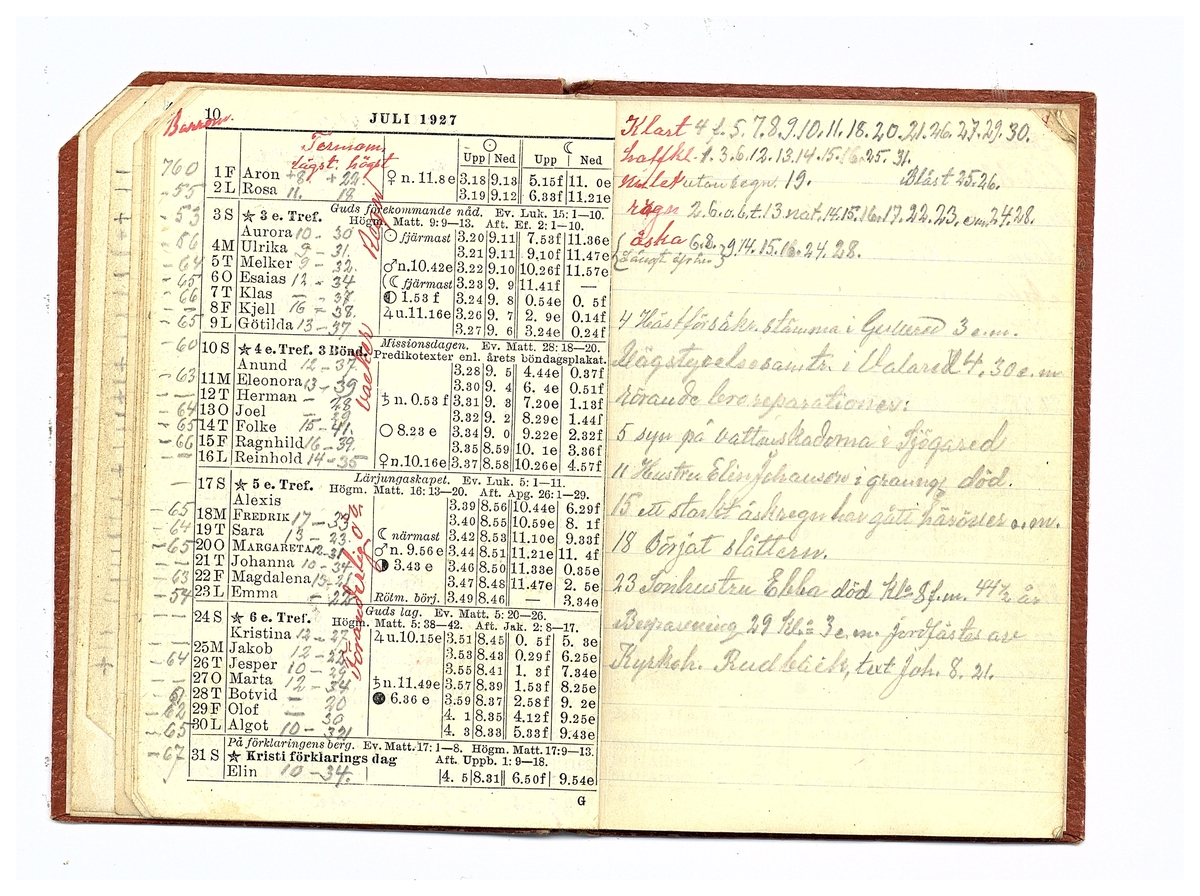 10
JULI 1927
Barrom.
Termom.
lägst. högst
Upp Ned Upp Ned
760 1 F Aron +8, +22 ♀ n. 11.8 e 3.18 9.13 5.15f 11. 0e
-55 2 L Rosa 11. 18 3.19 9.12 6.33f 11.21e
-53 3 S ★ 3 e. Tref. Guds förekommande nåd. Ev. Luk. 15: 1—10.
Högm. Matt. 9: 9—13. Aft. Ef. 2: 1—10.
Aurora 10 - 30 ☉ fjärmast 3.20 9.11 7.53f 11.36e
4 M Ulrika 9 - 31. 3.21 9.11 9.10f 11.47e
-64 5 T Melker 9 - 32. ♂ n. 10.42e 3.22 9.10 10.26f 11.57e
-65 6 O Esaias 12 - 34 ☾ fjärmast 3.23 9. 9 11.41f —
-66 7 T Klas — - 37 ◐ 1.53 f 3.24 9. 8 0.54e 0. 5f
8 F Kjell 16 - 38. ♃ u. 11.16e 3.26 9. 7 2. 9e 0.14f
-65 9 L Götilda 13 - 37 3.27 9. 6 3.24e 0.24f
-60 10 S ★ 4 e. Tref. 3 Bönd. Missionsdagen. Ev. Matt. 28: 18—20.
Predikotexter enl. årets böndagsplakat.
Anund 12 - 37. 3.28 9. 5 4.44e 0.37f
-63 11 M Eleonora 13 - 39 3.30 9. 4 6. 4e 0.51f
12 T Herman — 28 ♄ n. 0.53 f 3.31 9. 3 7.20e 1.13f
-64 13 O Joel — 39 3.32 9. 2 8.29e 1.44f
-65 14 T Folke 15 - 41. ○ 8.23 e 3.34 9. 0 9.22e 2.32f
-66 15 F Ragnhild 16 - 39. 3.35 8.59 10. 1e 3.36f
16 L Reinhold 14 - 35 ♀ n. 10.16e 3.37 8.58 10.26e 4.57f
17 S ★ 5 e. Tref. Lärjungaskapet. Ev. Luk. 5: 1—11.
Högm. Matt. 16: 13—20. Aft. Apg. 26: 1—29.
Alexis 3.39 8.56 10.44e 6.29f
-65 18 M FREDRIK 17 - 33 3.40 8.55 10.59e 8. 1f
-64 19 T Sara 13 - 23. ☾ närmast 3.42 8.53 11.10e 9.33f
-65 20 O MARGARETA 12 - 31 ♂ n. 9.56 e 3.44 8.51 11.21e 11. 4f
21 T Johanna 10 - 34 ◑ 3.43 e 3.46 8.50 11.33e 0.35e
-63 22 F Magdalena 15 - 21 3.47 8.48 11.47e 2. 5e
-54 23 L Emma Rötm. börj. 3.49 8.46 — 3.34e
24 S ★ 6 e. Tref. Guds lag. Ev. Matt. 5: 20—26.
Högm. Matt. 5: 38—42. Aft. Jak. 2: 8—17.
Kristina 12 - 27 ♃ u. 10.15e 3.51 8.45 0. 5f 5. 3e
25 M Jakob 12 - 3.53 8.43 0.29f 6.25e
-64 26 T Jesper 10 - 29 3.55 8.41 1. 3f 7.34e
27 O Marta 12 - 34 ♄ n. 11.49e 3.57 8.39 1.53f 8.25e
28 T Botvid — 20 ● 6.36 e 3.59 8.37 2.58f 9. 2e
-62 29 F Olof — 30 4. 1 8.35 4.12f 9.25e
-65 30 L Algot 10 - 32 4. 3 8.33 5.33f 9.43e
-67 31 S ★ Kristi förklarings dag På förklaringens berg. Ev. Matt. 17: 1—8. Högm. Matt. 17: 9—13.
Aft. Uppb. 1: 9—18.
Elin 10 - 34. 4. 5 8.31 6.50f 9.54e
G
Regn
vacker
föränderlig
Klart 4 f. 5. 7. 8. 9. 10. 11. 18. 20. 21. 26. 27. 29. 30.
halfkl. 1. 3. 6. 12. 13. 14. 15. 16. 25. 31.
mulet utan regn. 19. Blåst 25. 26.
regn 2. 6. o. b. t. 13. nat. 14. 15. 16. 17. 22. 23. em. 24. 28.
åska 6. 8. 9. 14. 15. 16. 24. 28.
4 Hästförsäkr. stämma i Gullered 3 e. m.
Vägstyrelsesamtr. i Valared 4.30 e. m
rörande broreparationer.
5 syn på vattenskadorna i Sjögared
11 Hustru Elin Johansson i grannge död.
15 ett starkt åskregn har gått häröver e. m.
18 Börjat slåttern.
23 Sonhustru Ebba död kl= 8 f. m. 44 1/2 år
Begravning 29 kl= 3 e. m. jordfästes av
Kyrkoh. Rudbäck, text Joh. 8. 21.